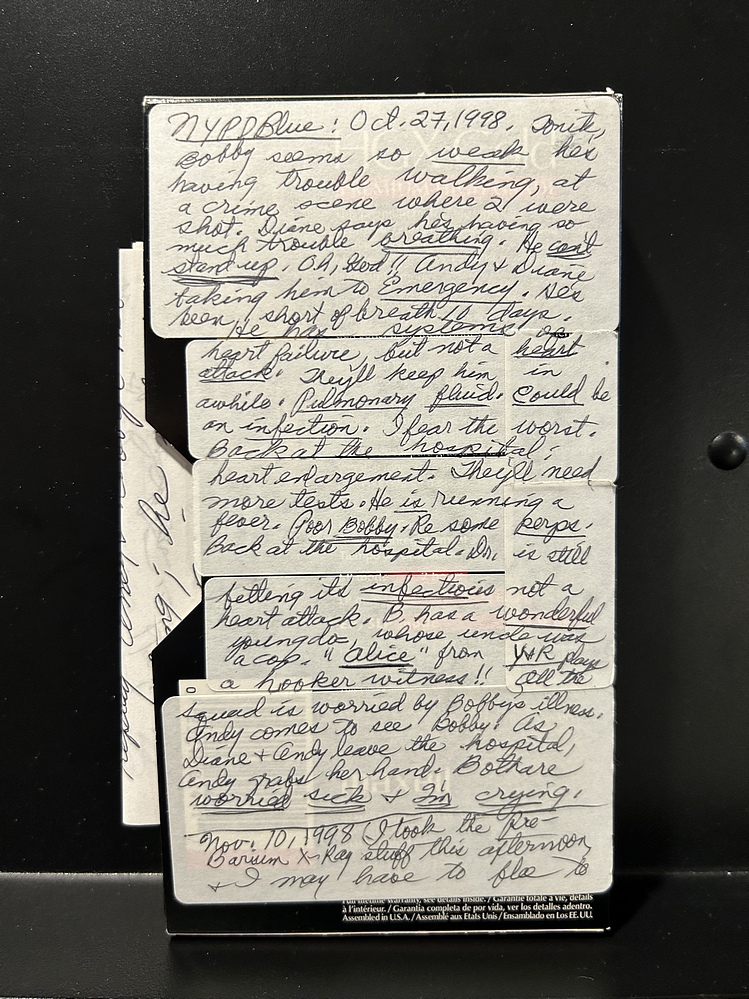 NYPD Blue! Oct. 27, 1998. Tonite,
Bobby seems so weak he's
having trouble walking, at
a crime scene where 2 were
shot. Diane says he's having so
much trouble breathing. He can't
stand up. Oh, God!! Andy & Diane
taking him to Emergency. He's
been short of breath 10 days.
He has systems
heart failure, but not a heart
attack. They'll keep him in
awhile. Pulmonary fluid. Could be
an infection. I fear the worst.
Back at the hospital;
heart enlargement. They'll need
more tests. He is running a
fever. Poor Bobby. Re some perps.
Back at the hospital. Dr. is still
betting its infectious not a
heart attack. B. has a wonderful
young doc, whose uncle was
a cop. "Alice" from Y&R plays
a hooker witness!! All the
squad is worried by Bobby's illness.
Andy comes to see Bobby. As
Diane & Andy leave the hospital,
Andy grabs her hand. Both are
worried sick & I'm crying.
Nov. 10, 1998 (I took the Pre-
Barium X-Ray stuff this afternoon
& I may have to flee to
he
Full lifetime warranty, see details inside. / Garantie totale à vie, détails
à l'intérieur. / Garantía completa de por vida, ver los detalles adentro.
Assembled in U.S.A. / Assemblé aux Etats Unis / Ensamblado en Los EE. UU.